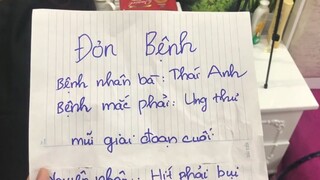 Đơn Bệnh
Bệnh nhân bà: Thái Anh
Bệnh mắc phải: Ung thư
mũi giai đoạn cuối
nhân: Hít phải bụi